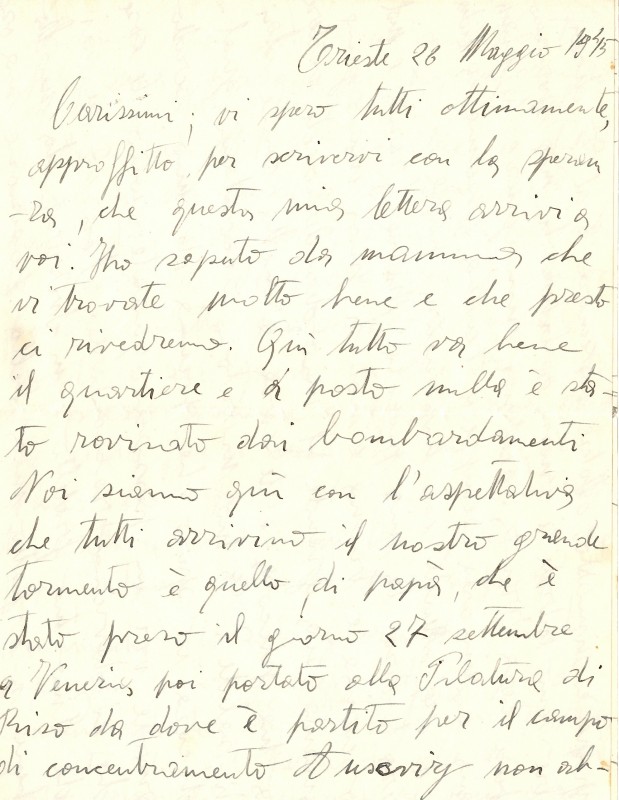 Trieste 26 Maggio 1945
Carissimi; vi spero tutti ottimamente,
approffitto per scrivervi con la speran
-za, che questa mia lettera arrivi a
voi. Ho saputo da mamma che
vi trovate molto bene e che presto
ci rivedremo. Quì tutto va bene
il quartiere e a posto nulla è sta-
to rovinato dai bombardamenti
Noi siamo quì con l'aspettativa
che tutti arrivino il nostro grande
tormento è quello, di papà, che è
stato preso il giorno 27 settembre
a Venezia, poi portato alla Pilatura di
Riso da dove è partito per il campo
di concentramento Ausoviz non ab-